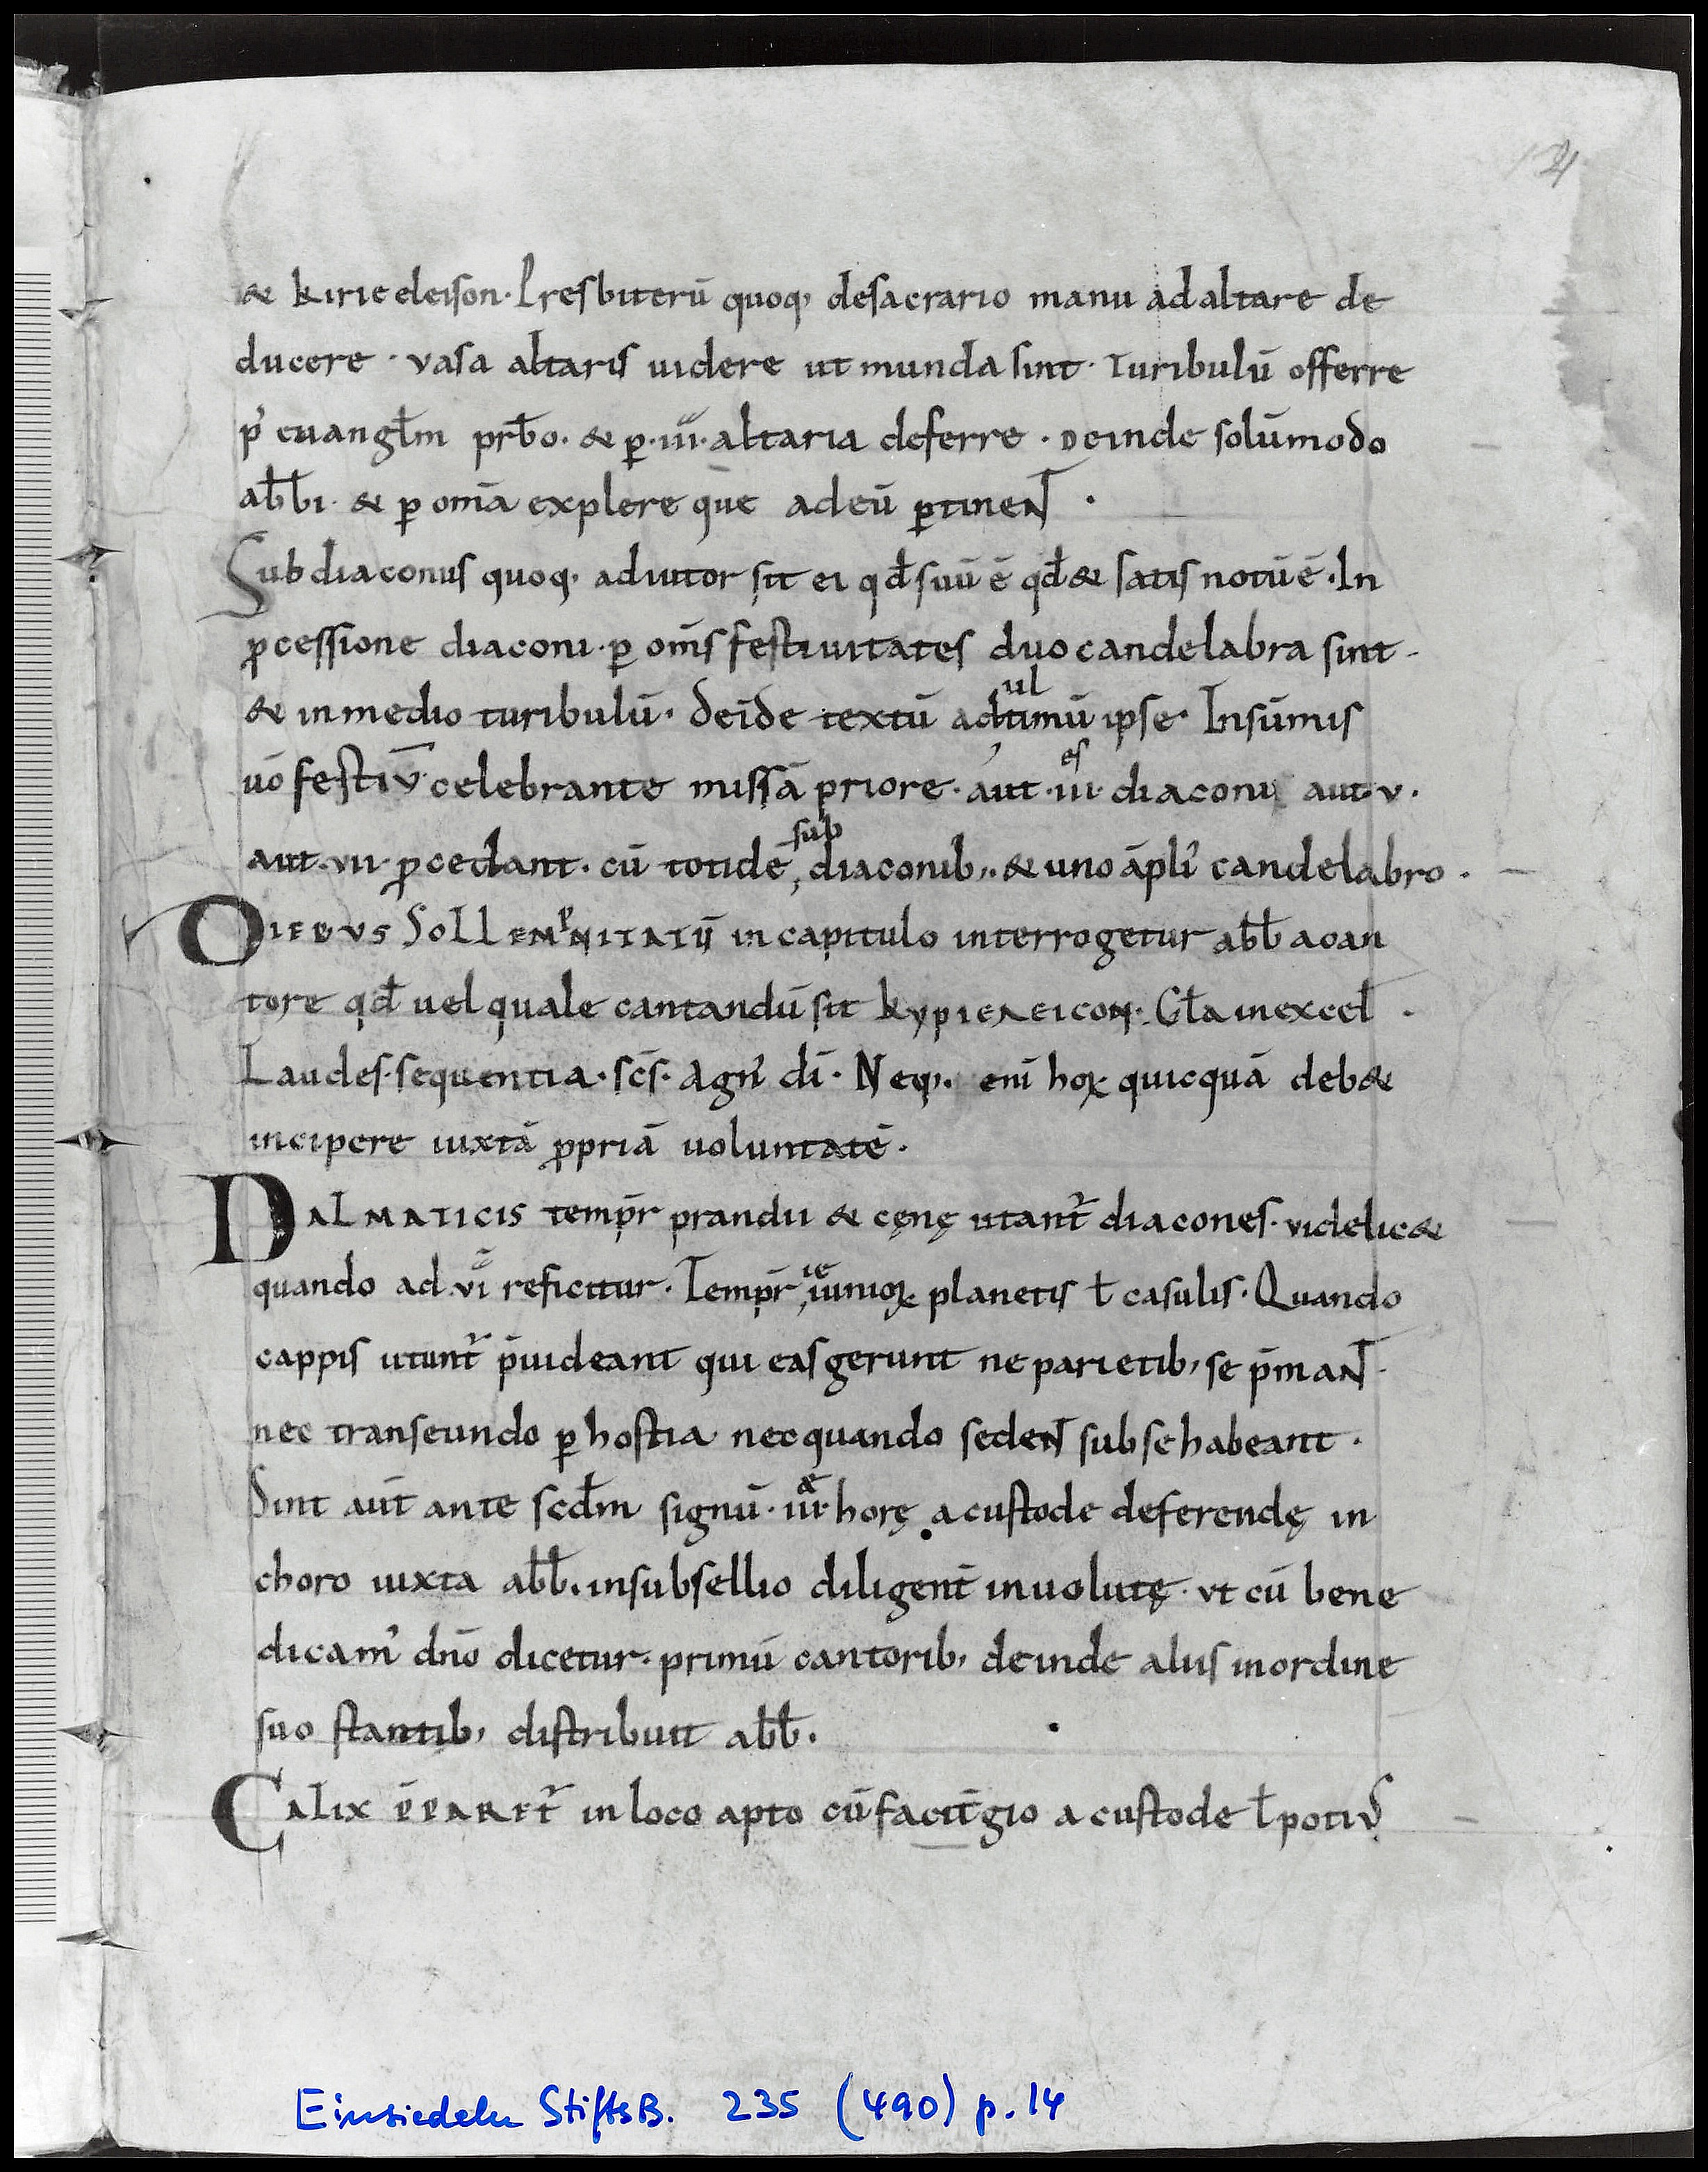 14
& kirieeleison. Presbiterū quoq; desacrario manu adaltare de
ducere. vasa altaris uidere ut munda sint. Turibulū offerre
p' euangl̄m prb̄o. & ꝑ .iii. altaria deferre. Deinde solūmodo
ab̄bi. & ꝑ om̄a explere que adeū ꝑtineN̄.
Subdiaconus quoq; adiutor sit ei qd̄ suū ē qd̄ & satis notū ē. In
ꝓcessione diaconi. ꝑ om̄s festiuitates duo candelabra sint.
& inmedio turibulū. deīde textū ad ul timū ipse. Insūmis
uō festiv̄ celebrante missā priore. aut .iii. es diaconi aut .v.
aut .vii. ꝓcedant. cū totidē sub diaconib;. & uno āpli' candelabro.
OIEBVS SOLLEMPNITATŪ in capitulo interrogetur ab̄b acan
tore qd̄ uel quale cantandū sit kypieleicon. Gl̄a inexcel̄.
Laudes. sequentia. sc̄s. Agn' dī. Neq;. enī hoꝝ quicquā deb&
incipere iuxtā ꝓpriā uoluntatē.
DALMATICIS temp̄r prandii & cęnę utant̄ diacones. videlic&
quando ad .vi. reficitur. Temp̄r ie iunioꝝ planetis ł casulis. Quando
cappis utunt̄ p̄uideant qui eas gerunt ne parietib; se p̄maN̄.
nec transeundo ꝑ hostia nec quando sedeN̄ subse habeant.
Sint aūt ante scd̄m signū .iii. ę horę acustode deferendę in
choro iuxta ab̄b. insubsellio diligent̄ inuolutę. vt cū bene
dicam' dn̄o dicetur. primū cantorib; deinde aliis inordine
suo stantib; distribuit ab̄b.
CALIX P̄PARET̄ in loco apto cū facit̄gio a custode ł potiv̄s
Einsiedeln StiftsB. 235 (490) p. 14